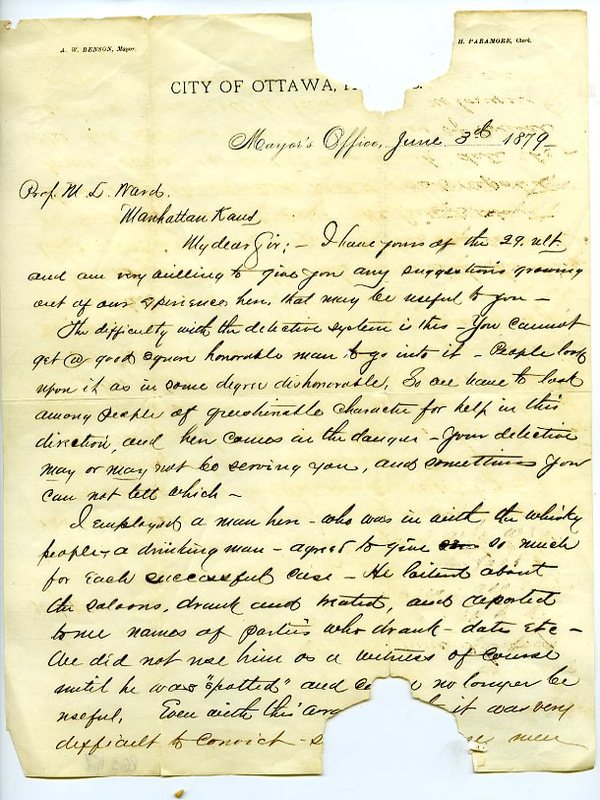 A. W. BENSON, Mayor.
H. PARAMORE, Clerk.
CITY OF OTTAWA,
Mayor's Office, June 3d 1879
Prof. M. L. Ward.
Manhattan Kans
My dear Sir; - I have yours of the 29. ult
and am very willing to give you any suggestions growing
out of our experience here, that may be useful to you -
The difficulty with the detective system is this - You cannot
get a good square honorable man to go into it - People look
upon it as in some degree dishonorable, So we have to look
among people of questionable character for help in this
direction, and here comes in the danger - Your detective
may or may not be serving you, and sometimes you
can not tell which -
I employed a man here - who was in with the whisky
people - a drinking man - agreed to give so much
for each successful case - He loitered about
the saloons, drank and treated, and reported
to me names of parties who drank - dates etc -
We did not use him as a witness of course
until he was "spotted" and no longer be
useful, Even with this it was very
difficult to convict - men